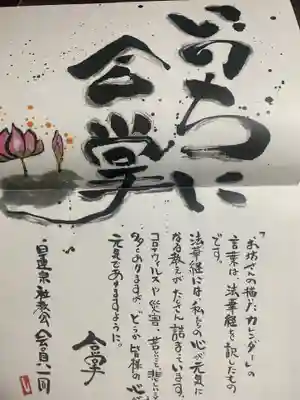 いのちに
合掌
「お坊さんの描いたカレンダー」の
言葉は、法華経を訳したもの
です。
法華経には、私たちの心が元気に
なる教えがたくさん詰まっています。
コロナウィルスや災害、苦しいこと悲しいこと
多くありますが、どうか皆様の心が
元気でありますように。
合掌
日蓮宗社教会 会員一同